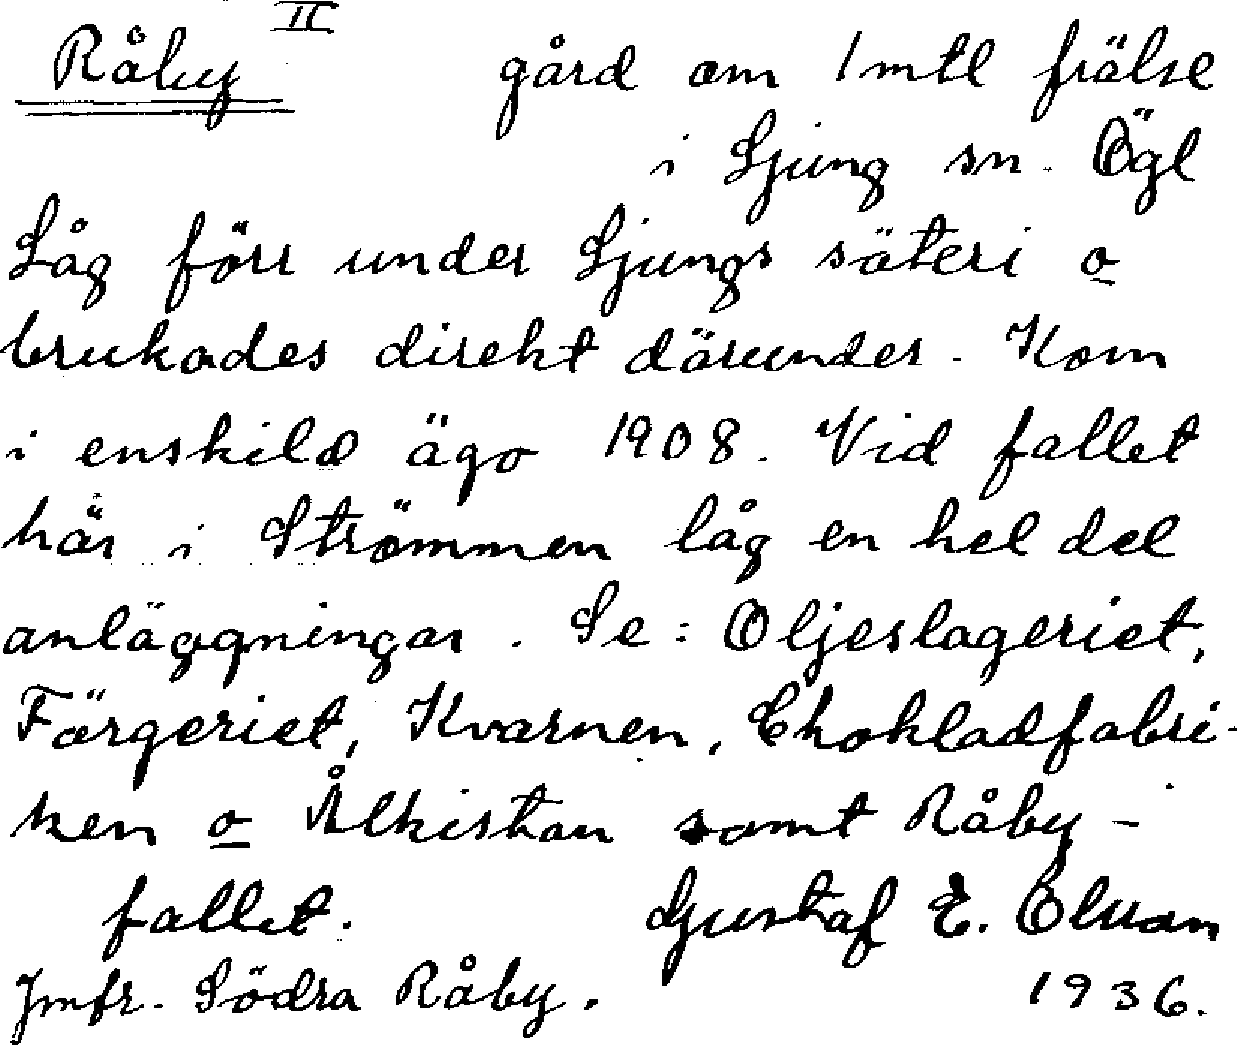 Råby II gård om 1 mtl frälse
i Ljung sn. Ögl
Låg förr under Ljungs säteri o
brukades direkt därunder. Kom
i enskild ägo 1908. Vid fallet
här i Strömmen låg en hel del
anläggningar. Se: Oljeslageriet,
Färgeriet, Kvarnen, Chokladfabri-
ken o Ålkistan samt Råby-
fallet. Gustaf E.
Jmfr. Södra Råby. 1936.